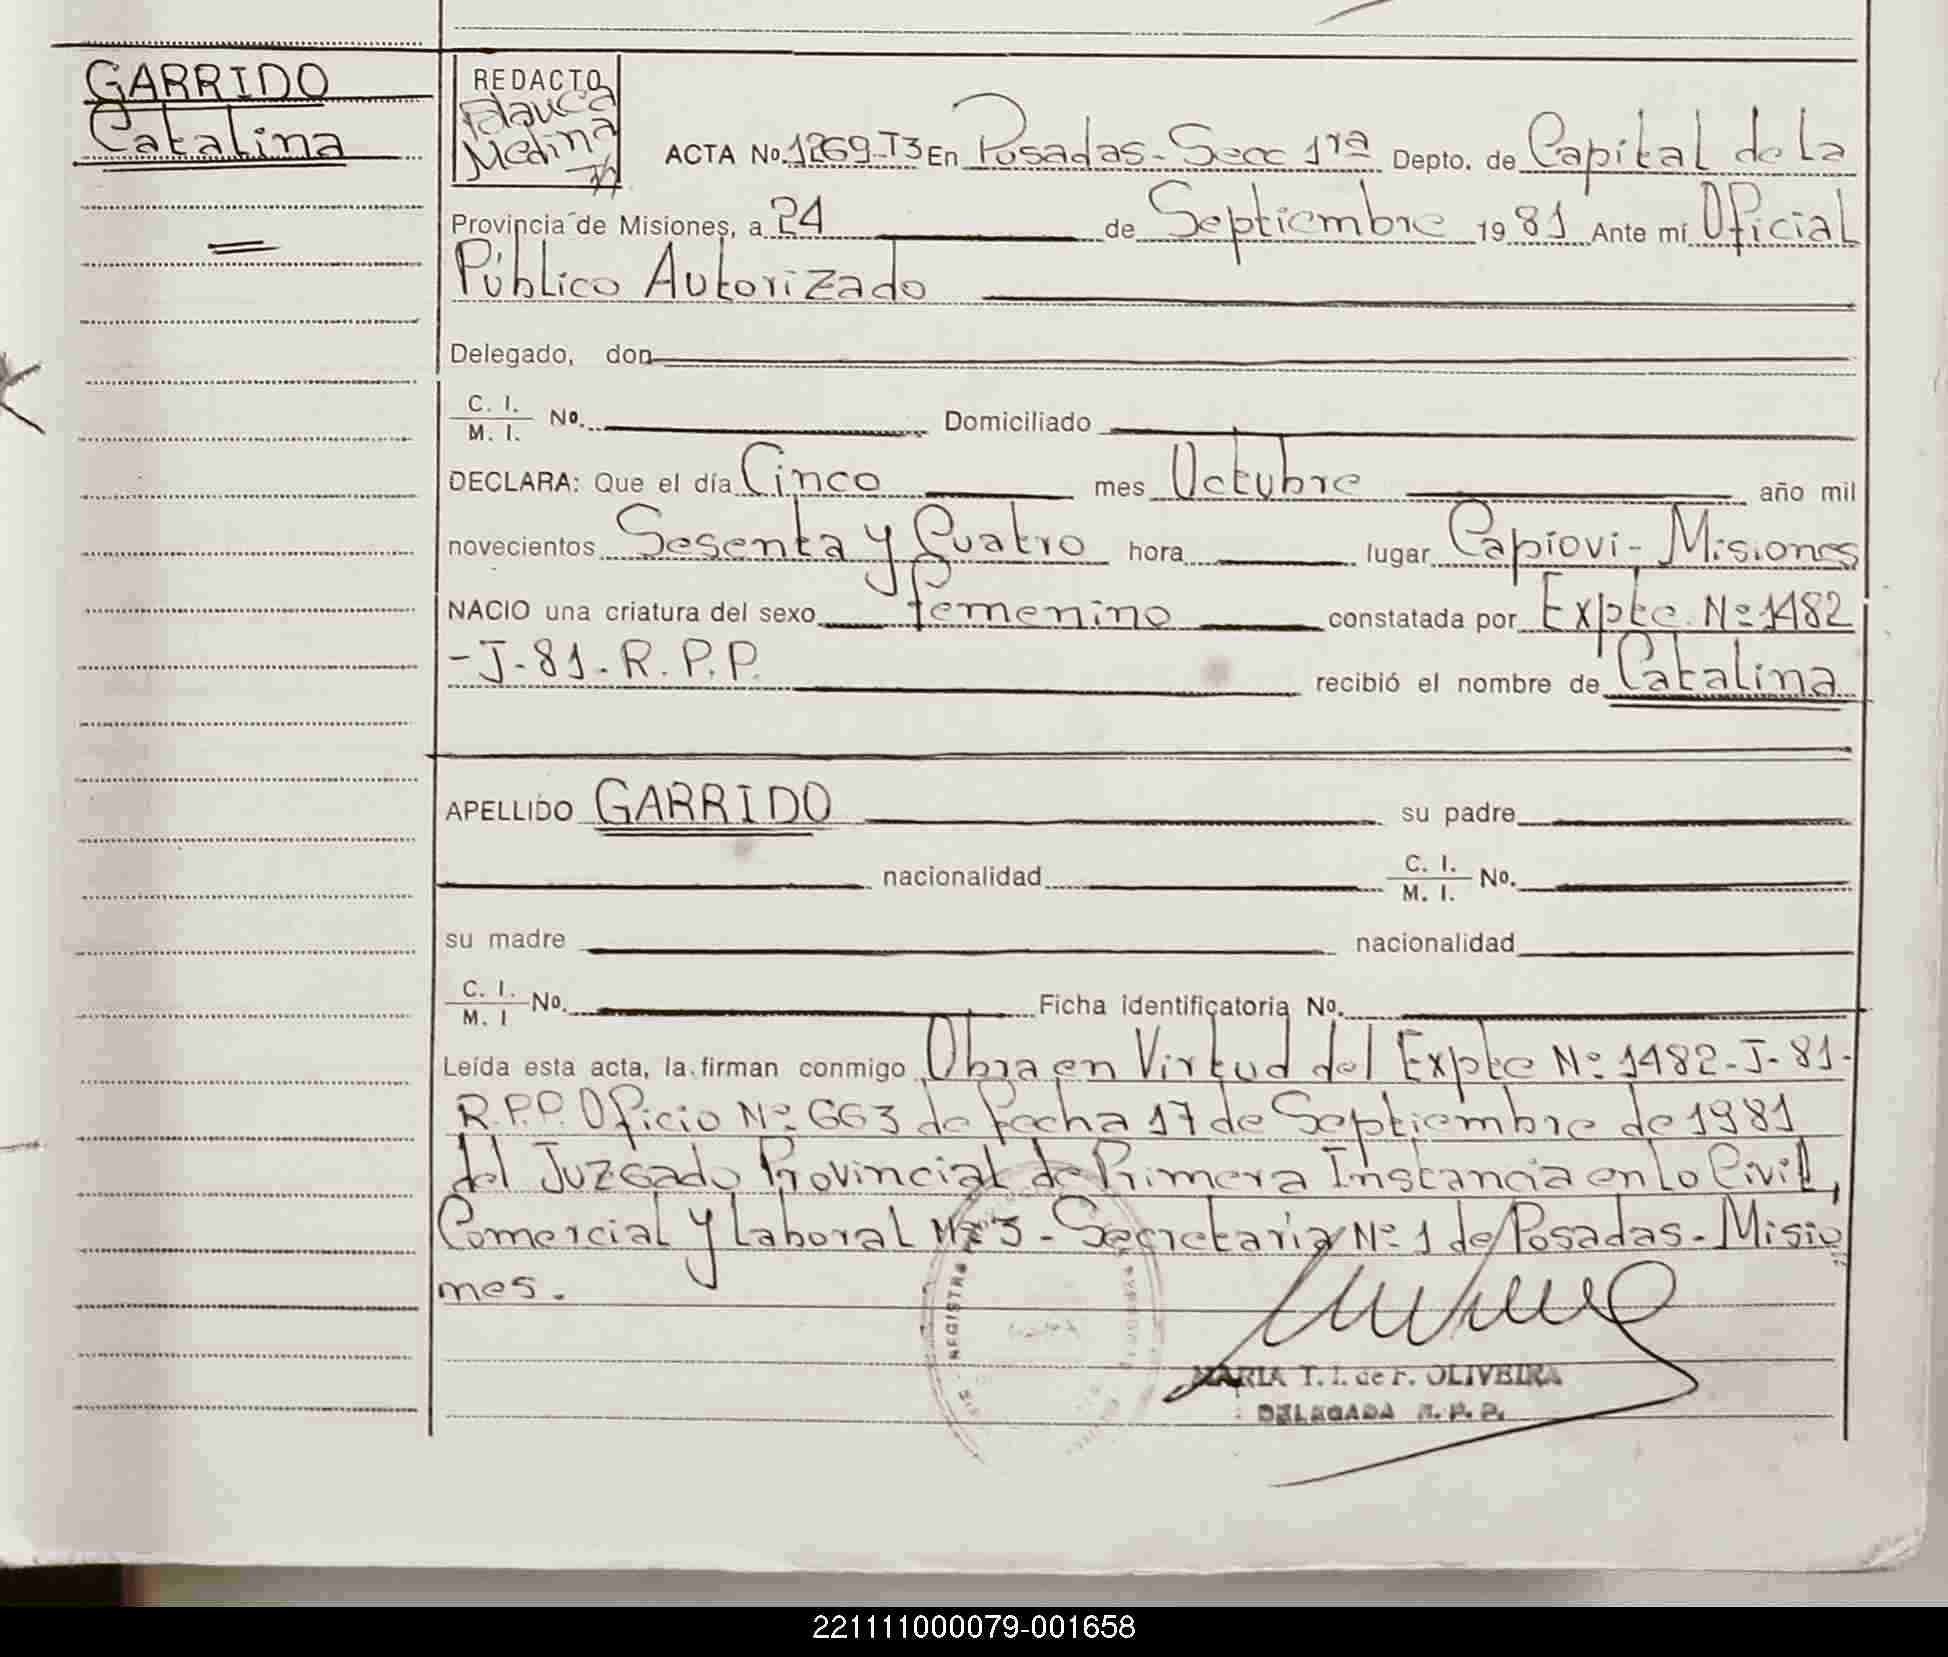 GARRIDO
Catalina
REDACTO
Medina
ACTA No. 1269-T3 En Posadas - Secc 1ra Depto. de Capital de la
Provincia de Misiones, a 24 de Septiembre 1981 Ante mí Oficial
Público Autorizado
Delegado, don
C. I.
M. I. No. Domiciliado
DECLARA: Que el día Cinco mes Octubre año mil
novecientos Sesenta y Cuatro hora lugar Capiovi - Misiones
NACIO una criatura del sexo femenino constatada por Expte. Nº 1482
-J-81-R.P.P. recibió el nombre de Catalina
APELLIDO GARRIDO su padre
nacionalidad C. I.
M. I. No.
su madre nacionalidad
C. I.
M. I No. Ficha identificatoria No.
Leída esta acta, la firman conmigo Obra en Virtud del Expte Nº 1482-J-81-
R.P.P. Oficio Nº 663 de fecha 17 de Septiembre de 1981
del Juzgado Provincial de Primera Instancia en lo Civil,
Comercial y Laboral Nº 3 - Secretaria Nº 1 de Posadas - Misio
nes.
REGISTRO
MARIA T. I. de F. OLIVEIRA
DELEGADA R. P. P.
221111000079-001658